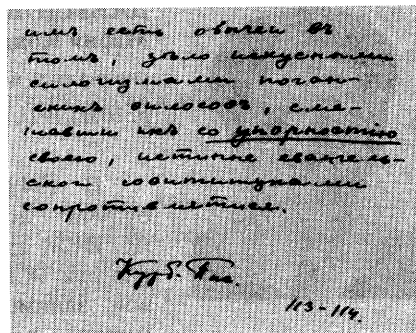 имъ есть обычей въ
томъ, зѣло искусными
силогизмами поган-
скихъ философъ, сме-
шавши ихъ со упорностію
своею, истинне евангель-
ской
сопротивлятися.
Курб.
113-114.